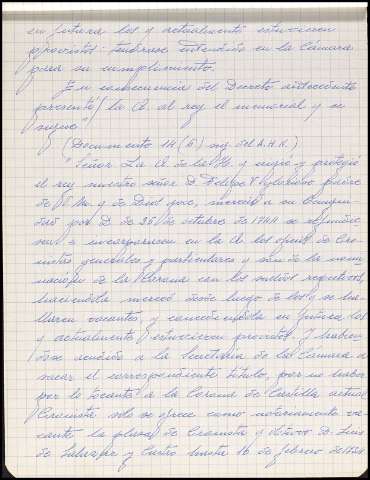 en futura los q actualmente estuviesen
provistos: tendrase entendido en la Cámara
para su cumplimiento.
En consecuencia del Decreto antecedente
presentó la A. al rey el memorial q se
sigue
(Documento 14 (6) orig. del A.H.N.)
"Señor. La A. de la H. q erigió y protegió
el rey nuestro señor D. Felipe V glorioso padre
de V.M. y de Dios goce, mereció a su
por D. de 25 de octubre de 1744 se
e incorporasen en la A. los ofics. de Cro-
nistas generales y particulares q son de la nomi-
nación de la Corona con los sueldos respectivos,
haciendola merced desde luego de los q se ha-
llaren vacantes y concediendola en futura los
q actualmente estuviesen provistos. Y habien-
dose acudido a la Secretaria de la Cámara a
sacar el correspondiente titulo, por no haber
por lo tocante a la Corona de Castilla actual
Cronista solo se ofrece como ultimamente va-
cante la plaza de Cronista q obtuvo D. Luis
de Salazar y Castro hasta 16 de febrero de 1734